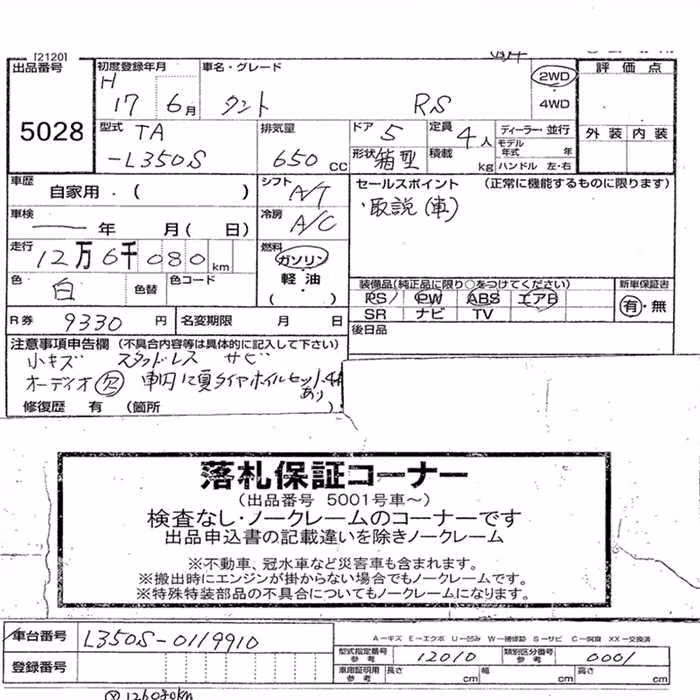 [2120]
出品番号 初度登録年月 車名・グレード 2WD 評価点
5028 H 17 6月 タント RS 4WD
型式 TA 排気量 ドア 5 定員 4人 ディーラー・並行 外装 内装
-L350S 650cc 形状 箱型 積載 kg モデル年式 年 ハンドル 左・右
車歴 自家用・( ) シフト A/T セールスポイント (正常に機能するものに限ります)
車検 ー年 月( 日) 冷房 A/C ・取説(車)
走行 12万6千080km 燃料 ガソリン 軽油 ( )
色 白 色替 色コード 装備品(純正品に限り○をつけてください) 新車保証書
PS PW ABS エアB 有・無
SR ナビ TV
R券 9330円 名変期限 月 日 後日品
注意事項申告欄 (不具合内容等は具体的に記入して下さい)
小キズ スタッドレス サビ
オーディオ欠 車内に夏タイヤホイルセット4本あり
修復歴 有 (箇所 )
落札保証コーナー
(出品番号 5001号車~)
検査なし・ノークレームのコーナーです
出品申込書の記載違いを除きノークレーム
※不動車、冠水車など災害車も含まれます。
※搬出時にエンジンが掛からない場合でもノークレームです。
※特殊特装部品の不具合についてもノークレームになります。
A-キズ E-エクボ U-凹み W-補修跡 S-サビ C-腐食 XX-交換済
車台番号 L350S-0119910 型式指定番号 参考 12010 類別区分番号 参考 0001
登録番号 車庫証明用 参考 長さ cm 幅 cm 高さ cm
126080km